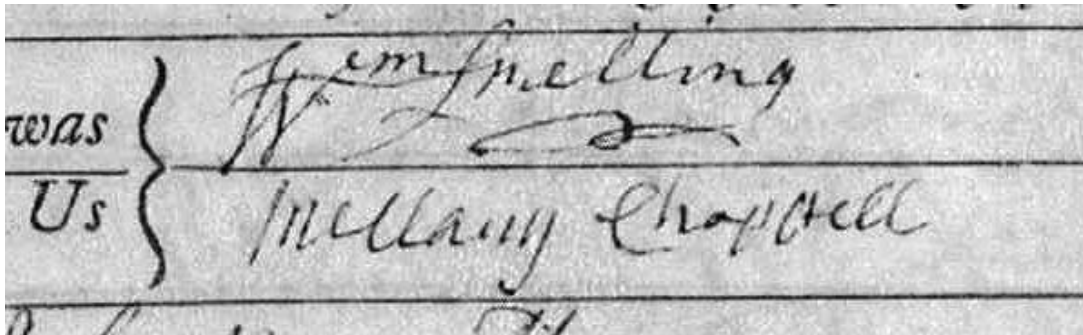 was
Wem Smelling
Us
Mellany Chappell